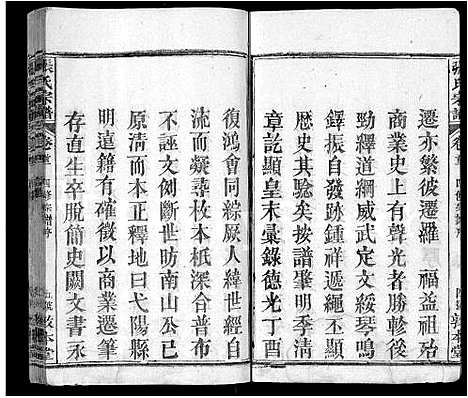 遷亦繁彼遷羅 福益祖考
商業史上赫赫有光勝轸後
勁繹道綱威武定文綏琴鳴
鐸振自發跡鍾祥遞繩丕顯
歷史其驗矣按譜肇明季清
章訖顯皇末彙錄德光丁酉
復鴻會同綜厥人緯世何自
流而凝尋枚本柢深合普布
不誣文刎斷世昉南山公已
原清而本正釋地曰弋陽縣
明遠籍有徵以商業遷筆
存直生卒脫簡史闕文書永
張氏宗譜
卷首
敦本堂